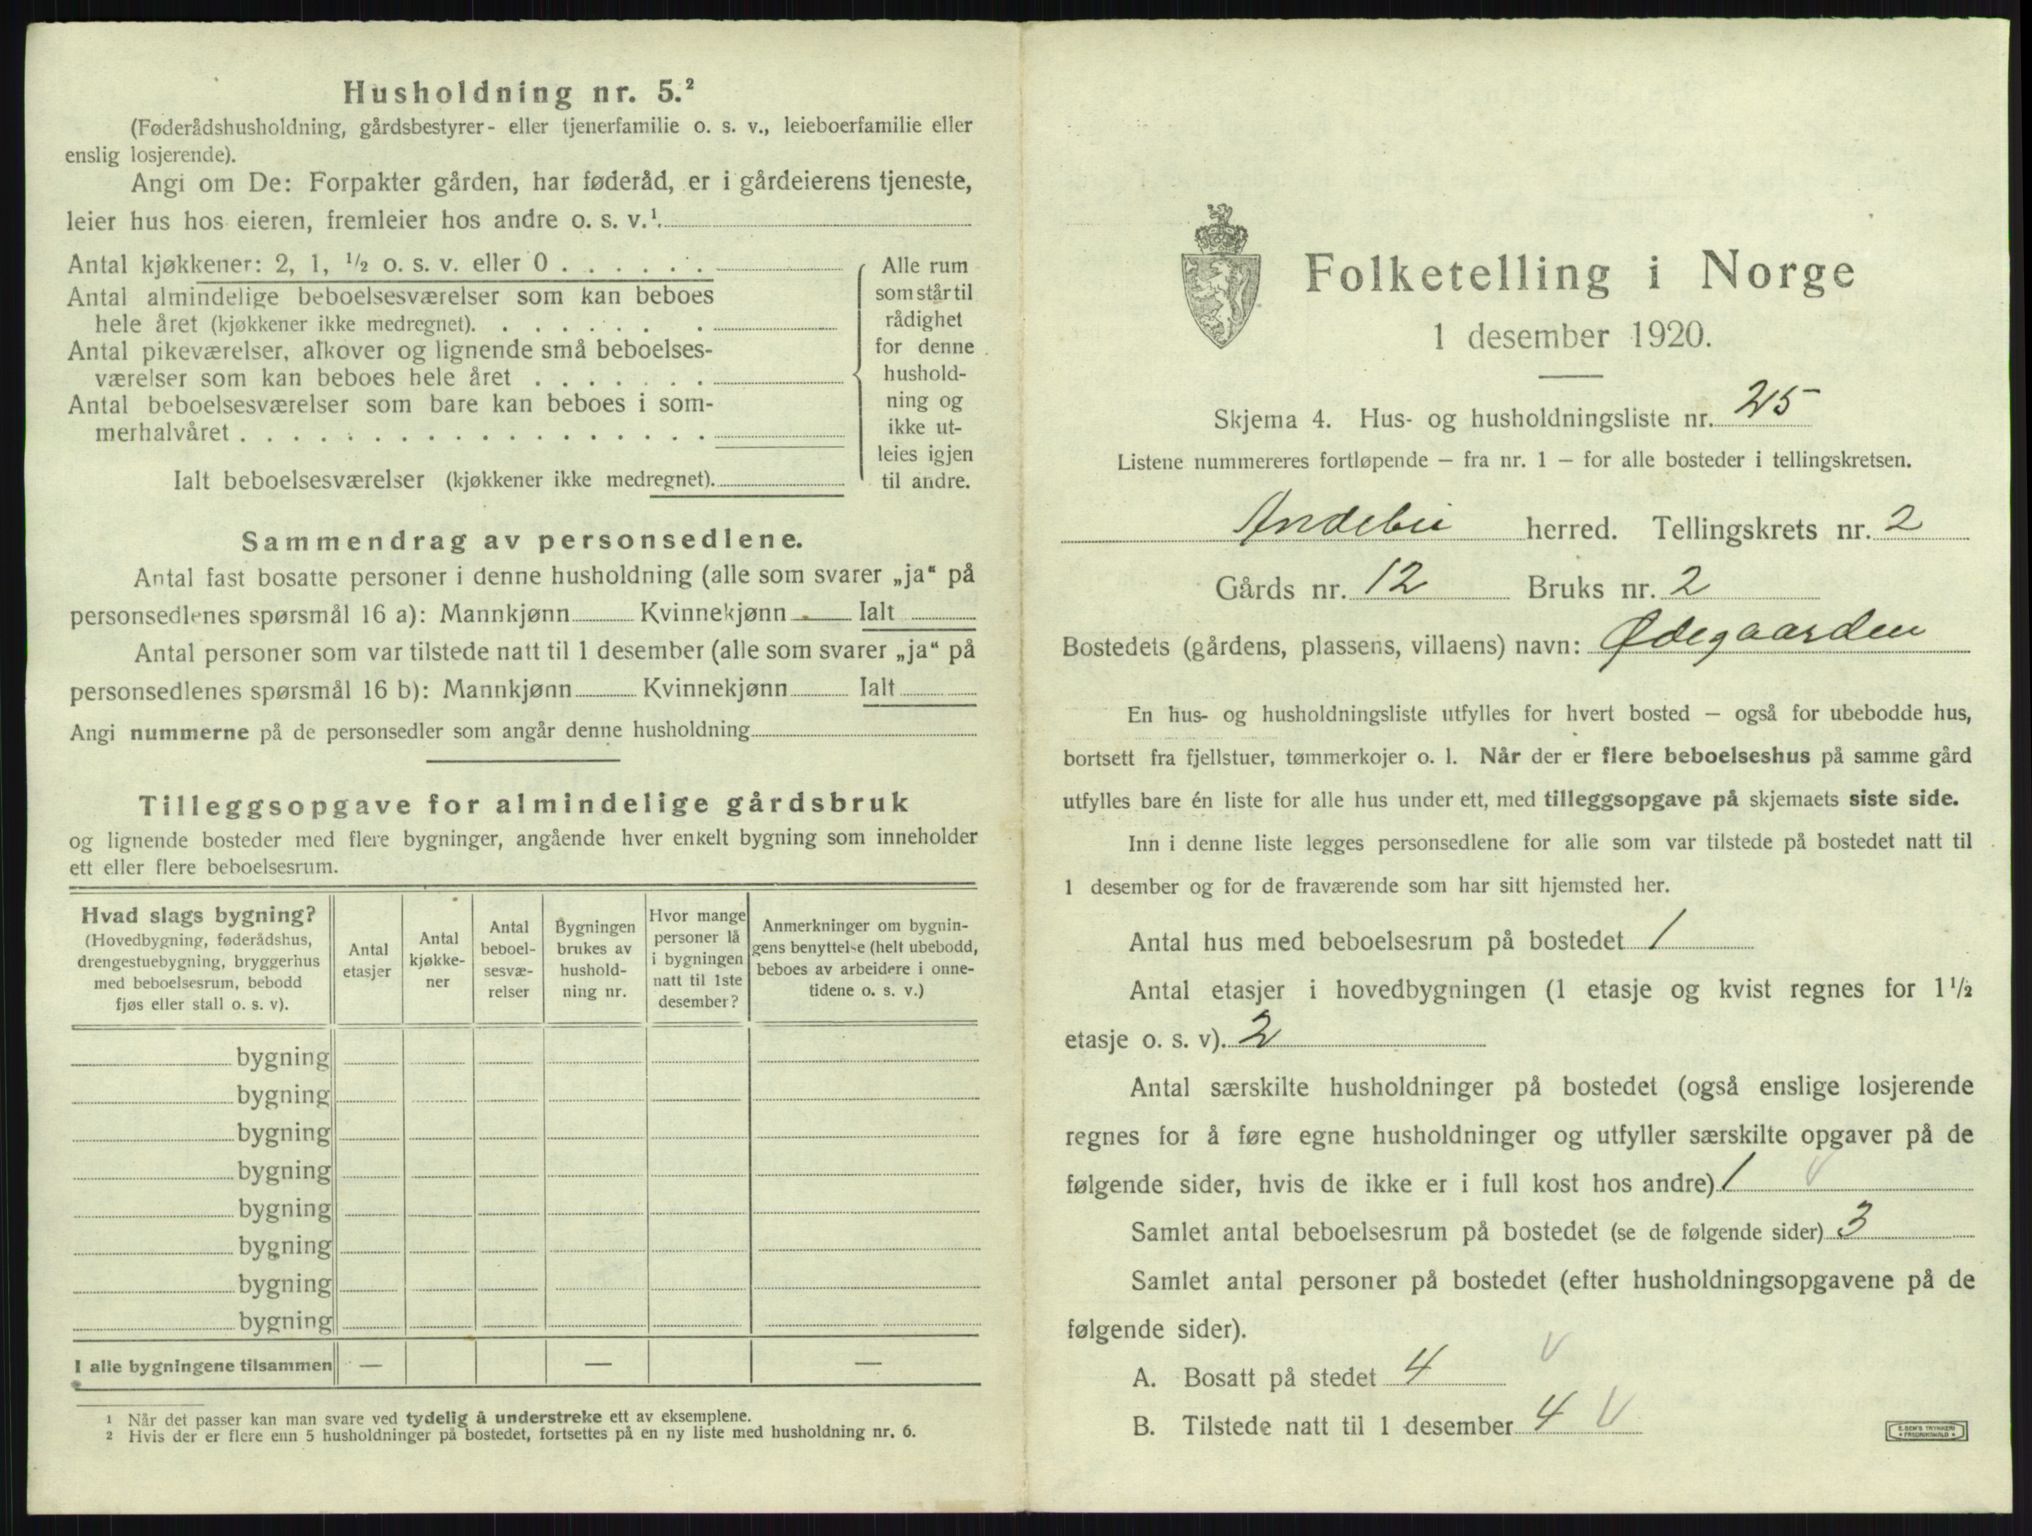 Husholdning nr. 5.²
(Føderådshusholdning, gårdsbestyrer- eller tjenerfamilie o. s. v., leieboerfamilie eller
enslig losjerende).
Angi om De: Forpakter gården, har føderåd, er i gårdeierens tjeneste,
leier hus hos eieren, fremleier hos andre o. s. v.¹.
Antal kjøkkener: 2, 1, ½ o. s. v. eller 0 . . . . . .
Antal almindelige beboelsesværelser som kan beboes
hele året (kjøkkener ikke medregnet). . . . . . . .
Antal pikeværelser, alkover og lignende små beboelses-
værelser som kan beboes hele året . . . . . . .
Antal beboelsesværelser som bare kan beboes i som-
merhalvåret . . . . . . . . . . . . . . . . . .
Ialt beboelsesværelser (kjøkkener ikke medregnet).
Alle rum
som står til
rådighet
for denne
hushold-
ning og
ikke ut-
leies igjen
til andre.
Sammendrag av personsedlene.
Antal fast bosatte personer i denne husholdning (alle som svarer „ja“ på
personsedlenes spørsmål 16 a): Mannkjønn Kvinnekjønn Ialt
Antal personer som var tilstede natt til 1 desember (alle som svarer „ja“ på
personsedlenes spørsmål 16 b): Mannkjønn Kvinnekjønn Ialt
Angi nummerne på de personsedler som angår denne husholdning
Tilleggsopgave for almindelige gårdsbruk
og lignende bosteder med flere bygninger, angående hver enkelt bygning som inneholder
ett eller flere beboelsesrum.
Hvad slags bygning?
(Hovedbygning, føderådshus,
drengestuebygning, bryggerhus
med beboelsesrum, bebodd
fjøs eller stall o. s. v).
Antal
etasjer
Antal
kjøkke-
ner
Antal
beboel-
sesvæ-
relser
Bygningen
brukes av
hushold-
ning nr.
Hvor mange
personer lå
i bygningen
natt til 1ste
desember?
Anmerkninger om bygnin-
gens benyttelse (helt ubebodd,
beboes av arbeidere i onne-
tidene o. s. v.)
bygning
bygning
bygning
bygning
bygning
bygning
bygning
bygning
I alle bygningene tilsammen — — —
¹ Når det passer kan man svare ved tydelig å understreke ett av eksemplene.
² Hvis der er flere enn 5 husholdninger på bostedet, fortsettes på en ny liste med husholdning nr. 6.
Folketelling i Norge
1 desember 1920.
Skjema 4. Hus- og husholdningsliste nr. 25
Listene nummereres fortløpende – fra nr. 1 – for alle bosteder i tellingskretsen.
Andebu herred. Tellingskrets nr. 2
Gårds nr. 12 Bruks nr. 2
Bostedets (gårdens, plassens, villaens) navn: Ødegaarden
En hus- og husholdningsliste utfylles for hvert bosted – også for ubebodde hus,
bortsett fra fjellstuer, tømmerkojer o. l. Når der er flere beboelseshus på samme gård
utfylles bare én liste for alle hus under ett, med tilleggsopgave på skjemaets siste side.
Inn i denne liste legges personsedlene for alle som var tilstede på bostedet natt til
1 desember og for de fraværende som har sitt hjemsted her.
Antal hus med beboelsesrum på bostedet 1
Antal etasjer i hovedbygningen (1 etasje og kvist regnes for 1½
etasje o. s. v). 2
Antal særskilte husholdninger på bostedet (også enslige losjerende
regnes for å føre egne husholdninger og utfyller særskilte opgaver på de
følgende sider, hvis de ikke er i full kost hos andre) 1 v
Samlet antal beboelsesrum på bostedet (se de følgende sider) 3
Samlet antal personer på bostedet (efter husholdningsopgavene på de
følgende sider).
A. Bosatt på stedet 4 v
B. Tilstede natt til 1 desember 4 v